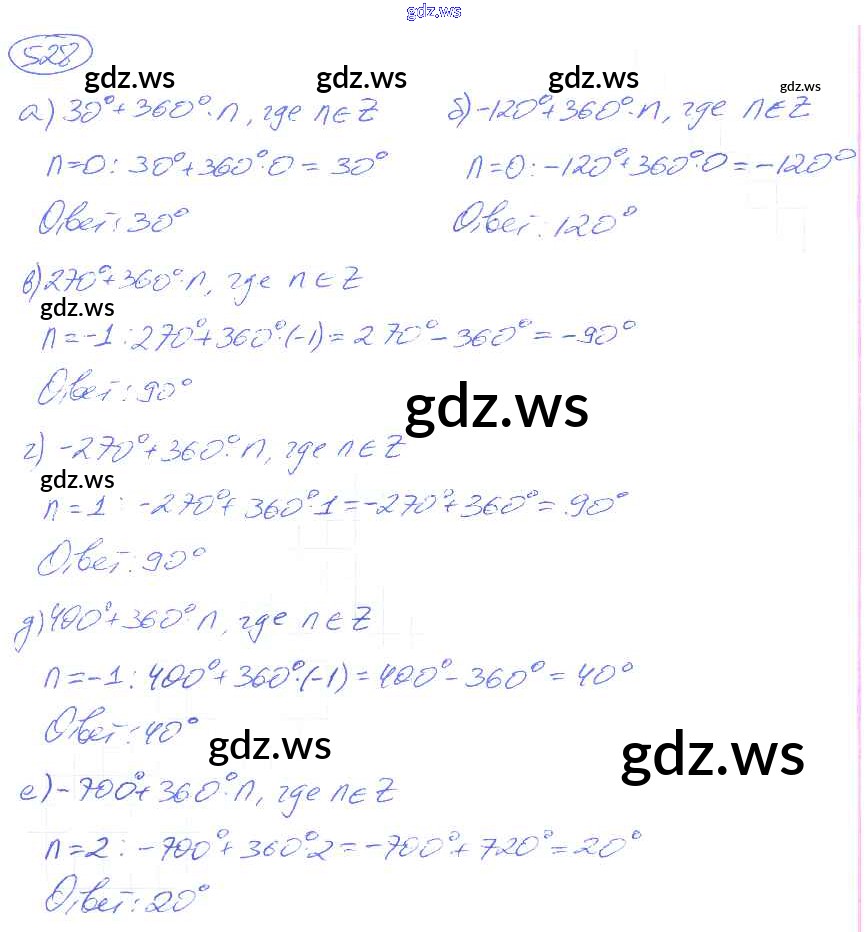 gdz.ws
528
gdz.ws gdz.ws gdz.ws gdz.ws
а) 30°+360°·n, где n∈Z
n=0: 30°+360°·0=30°
Ответ: 30°
б) -120°+360°·n, где n∈Z
n=0: -120°+360°·0=-120°
Ответ: 120°
в) 270°+360°·n, где n∈Z
gdz.ws
n=-1: 270°+360°·(-1)=270°-360°=-90°
Ответ: 90°
gdz.ws
г) -270°+360°·n, где n∈Z
gdz.ws
n=1: -270°+360°·1=-270°+360°=90°
Ответ: 90°
д) 400°+360°·n, где n∈Z
n=-1: 400°+360°·(-1)=400°-360°=40°
Ответ: 40°
gdz.ws gdz.ws
е) -700°+360°·n, где n∈Z
n=2: -700°+360°·2=-700°+720°=20°
Ответ: 20°